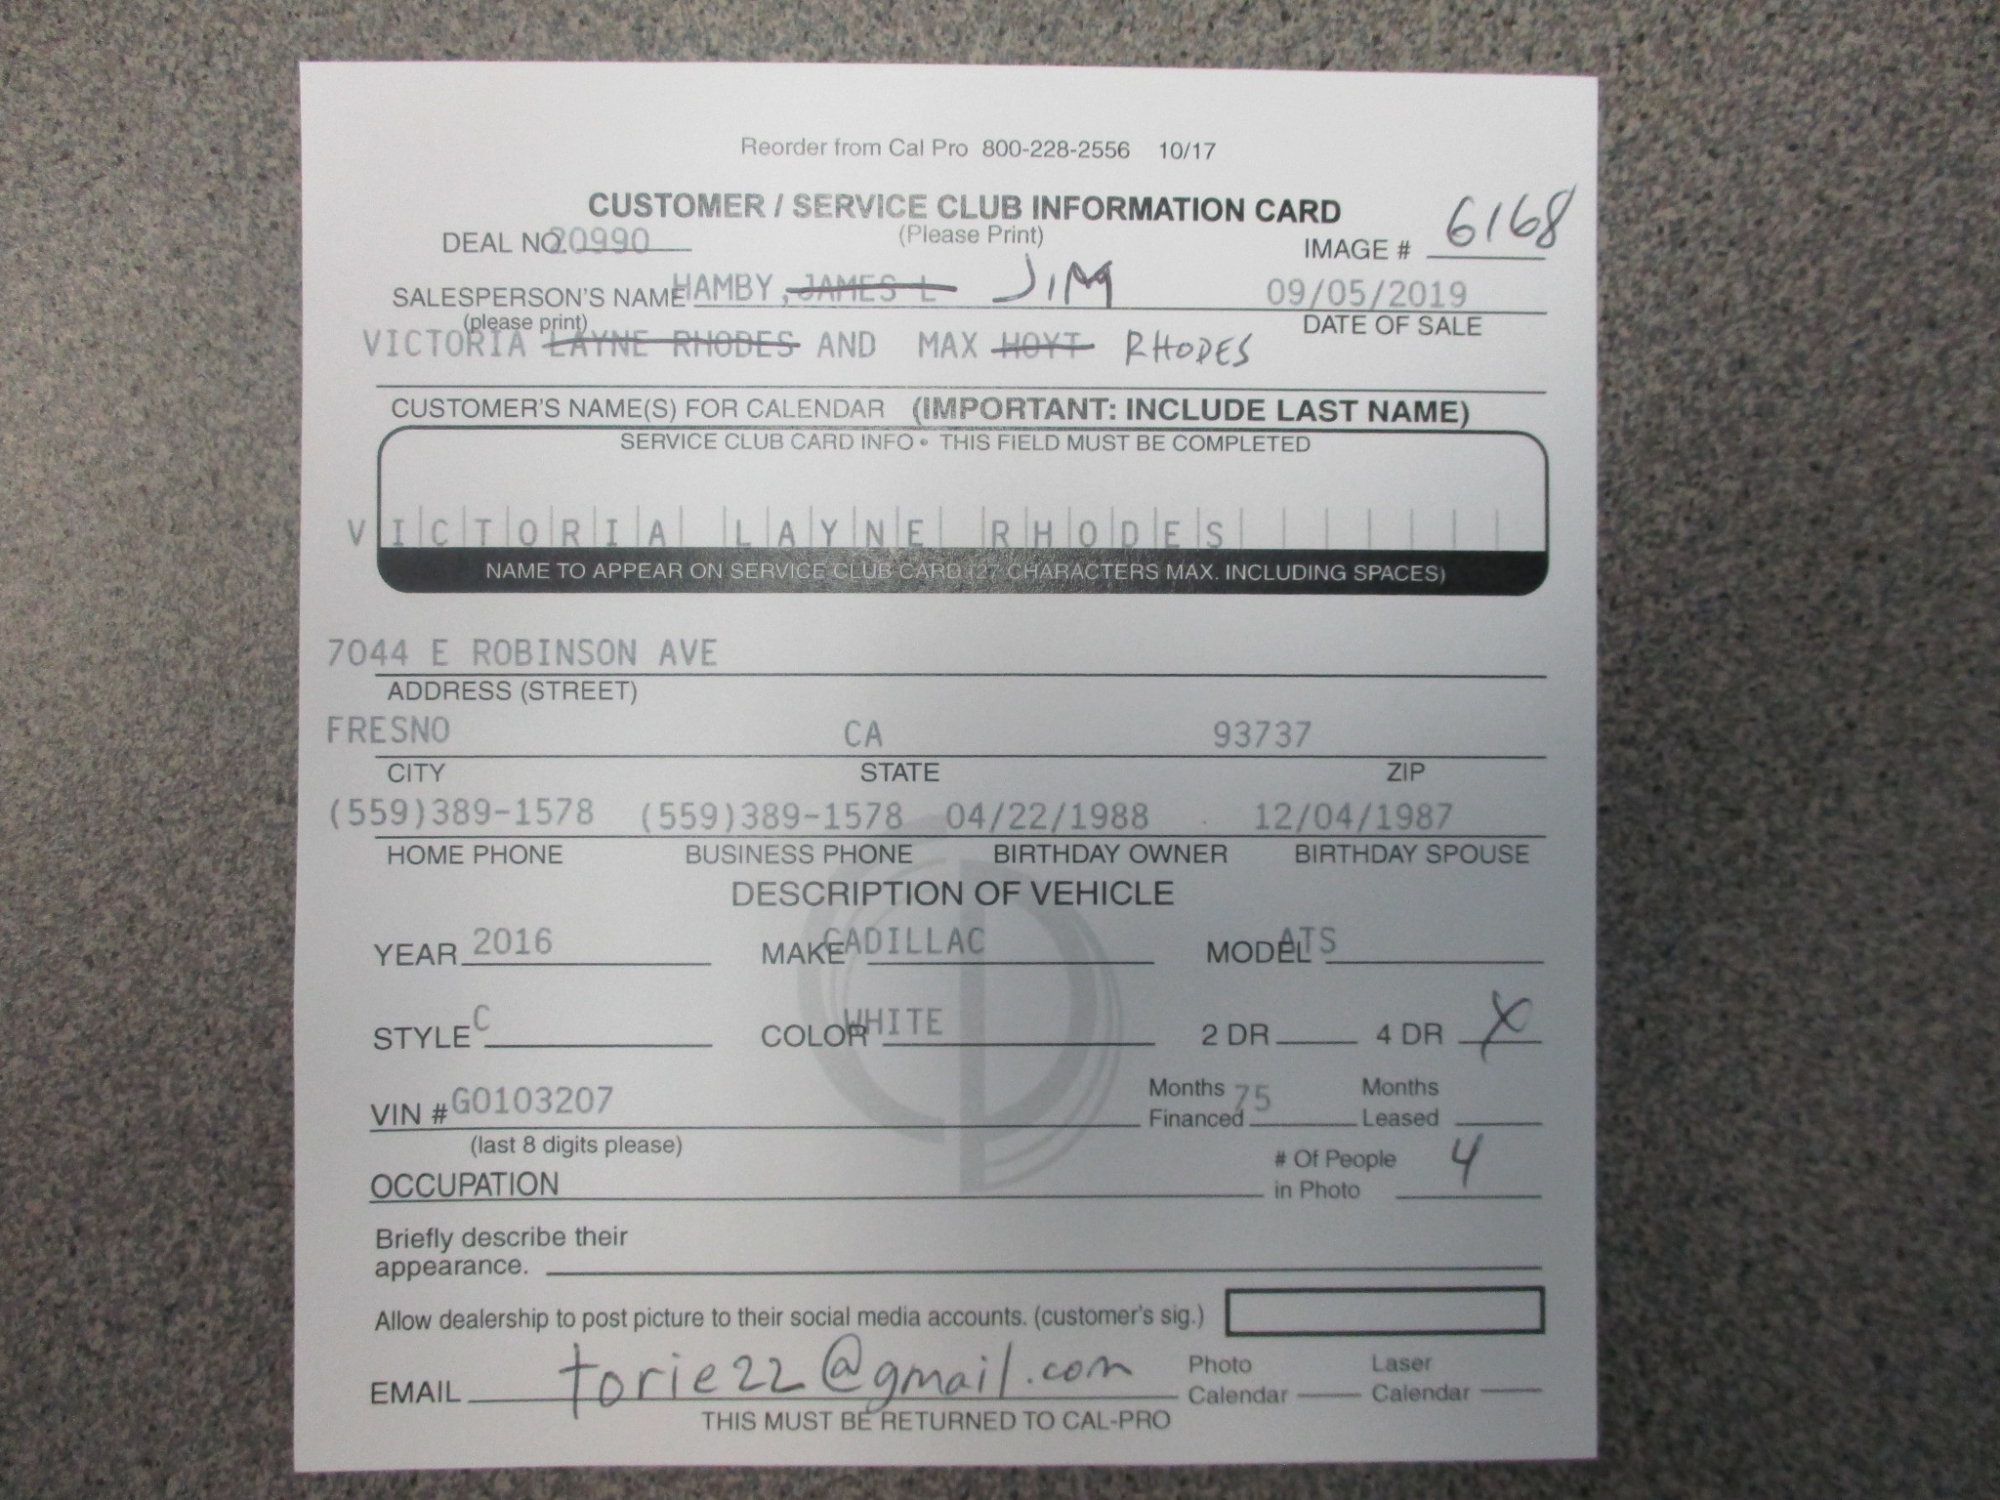 Reorder from Cal Pro 800-228-2556 10/17
CUSTOMER / SERVICE CLUB INFORMATION CARD
(Please Print)
DEAL NO. 20990
IMAGE # 6168
SALESPERSON'S NAME HAMBY, JAMES L JIM 09/05/2019
(please print) DATE OF SALE
VICTORIA LAYNE RHODES AND MAX HOYT RHODES
CUSTOMER'S NAME(S) FOR CALENDAR (IMPORTANT: INCLUDE LAST NAME)
SERVICE CLUB CARD INFO • THIS FIELD MUST BE COMPLETED
VICTORIA LAYNE RHODES
NAME TO APPEAR ON SERVICE CLUB CARD (27 CHARACTERS MAX. INCLUDING SPACES)
7044 E ROBINSON AVE
ADDRESS (STREET)
FRESNO CA 93737
CITY STATE ZIP
(559)389-1578 (559)389-1578 04/22/1988 12/04/1987
HOME PHONE BUSINESS PHONE BIRTHDAY OWNER BIRTHDAY SPOUSE
DESCRIPTION OF VEHICLE
YEAR 2016 MAKE CADILLAC MODEL ATS
STYLE C COLOR WHITE 2 DR 4 DR X
VIN # G0103207 Months Financed 75 Months Leased
(last 8 digits please)
OCCUPATION # Of People in Photo 4
Briefly describe their
appearance.
Allow dealership to post picture to their social media accounts. (customer's sig.)
EMAIL torie22@gmail.com Photo Calendar Laser Calendar
THIS MUST BE RETURNED TO CAL-PRO